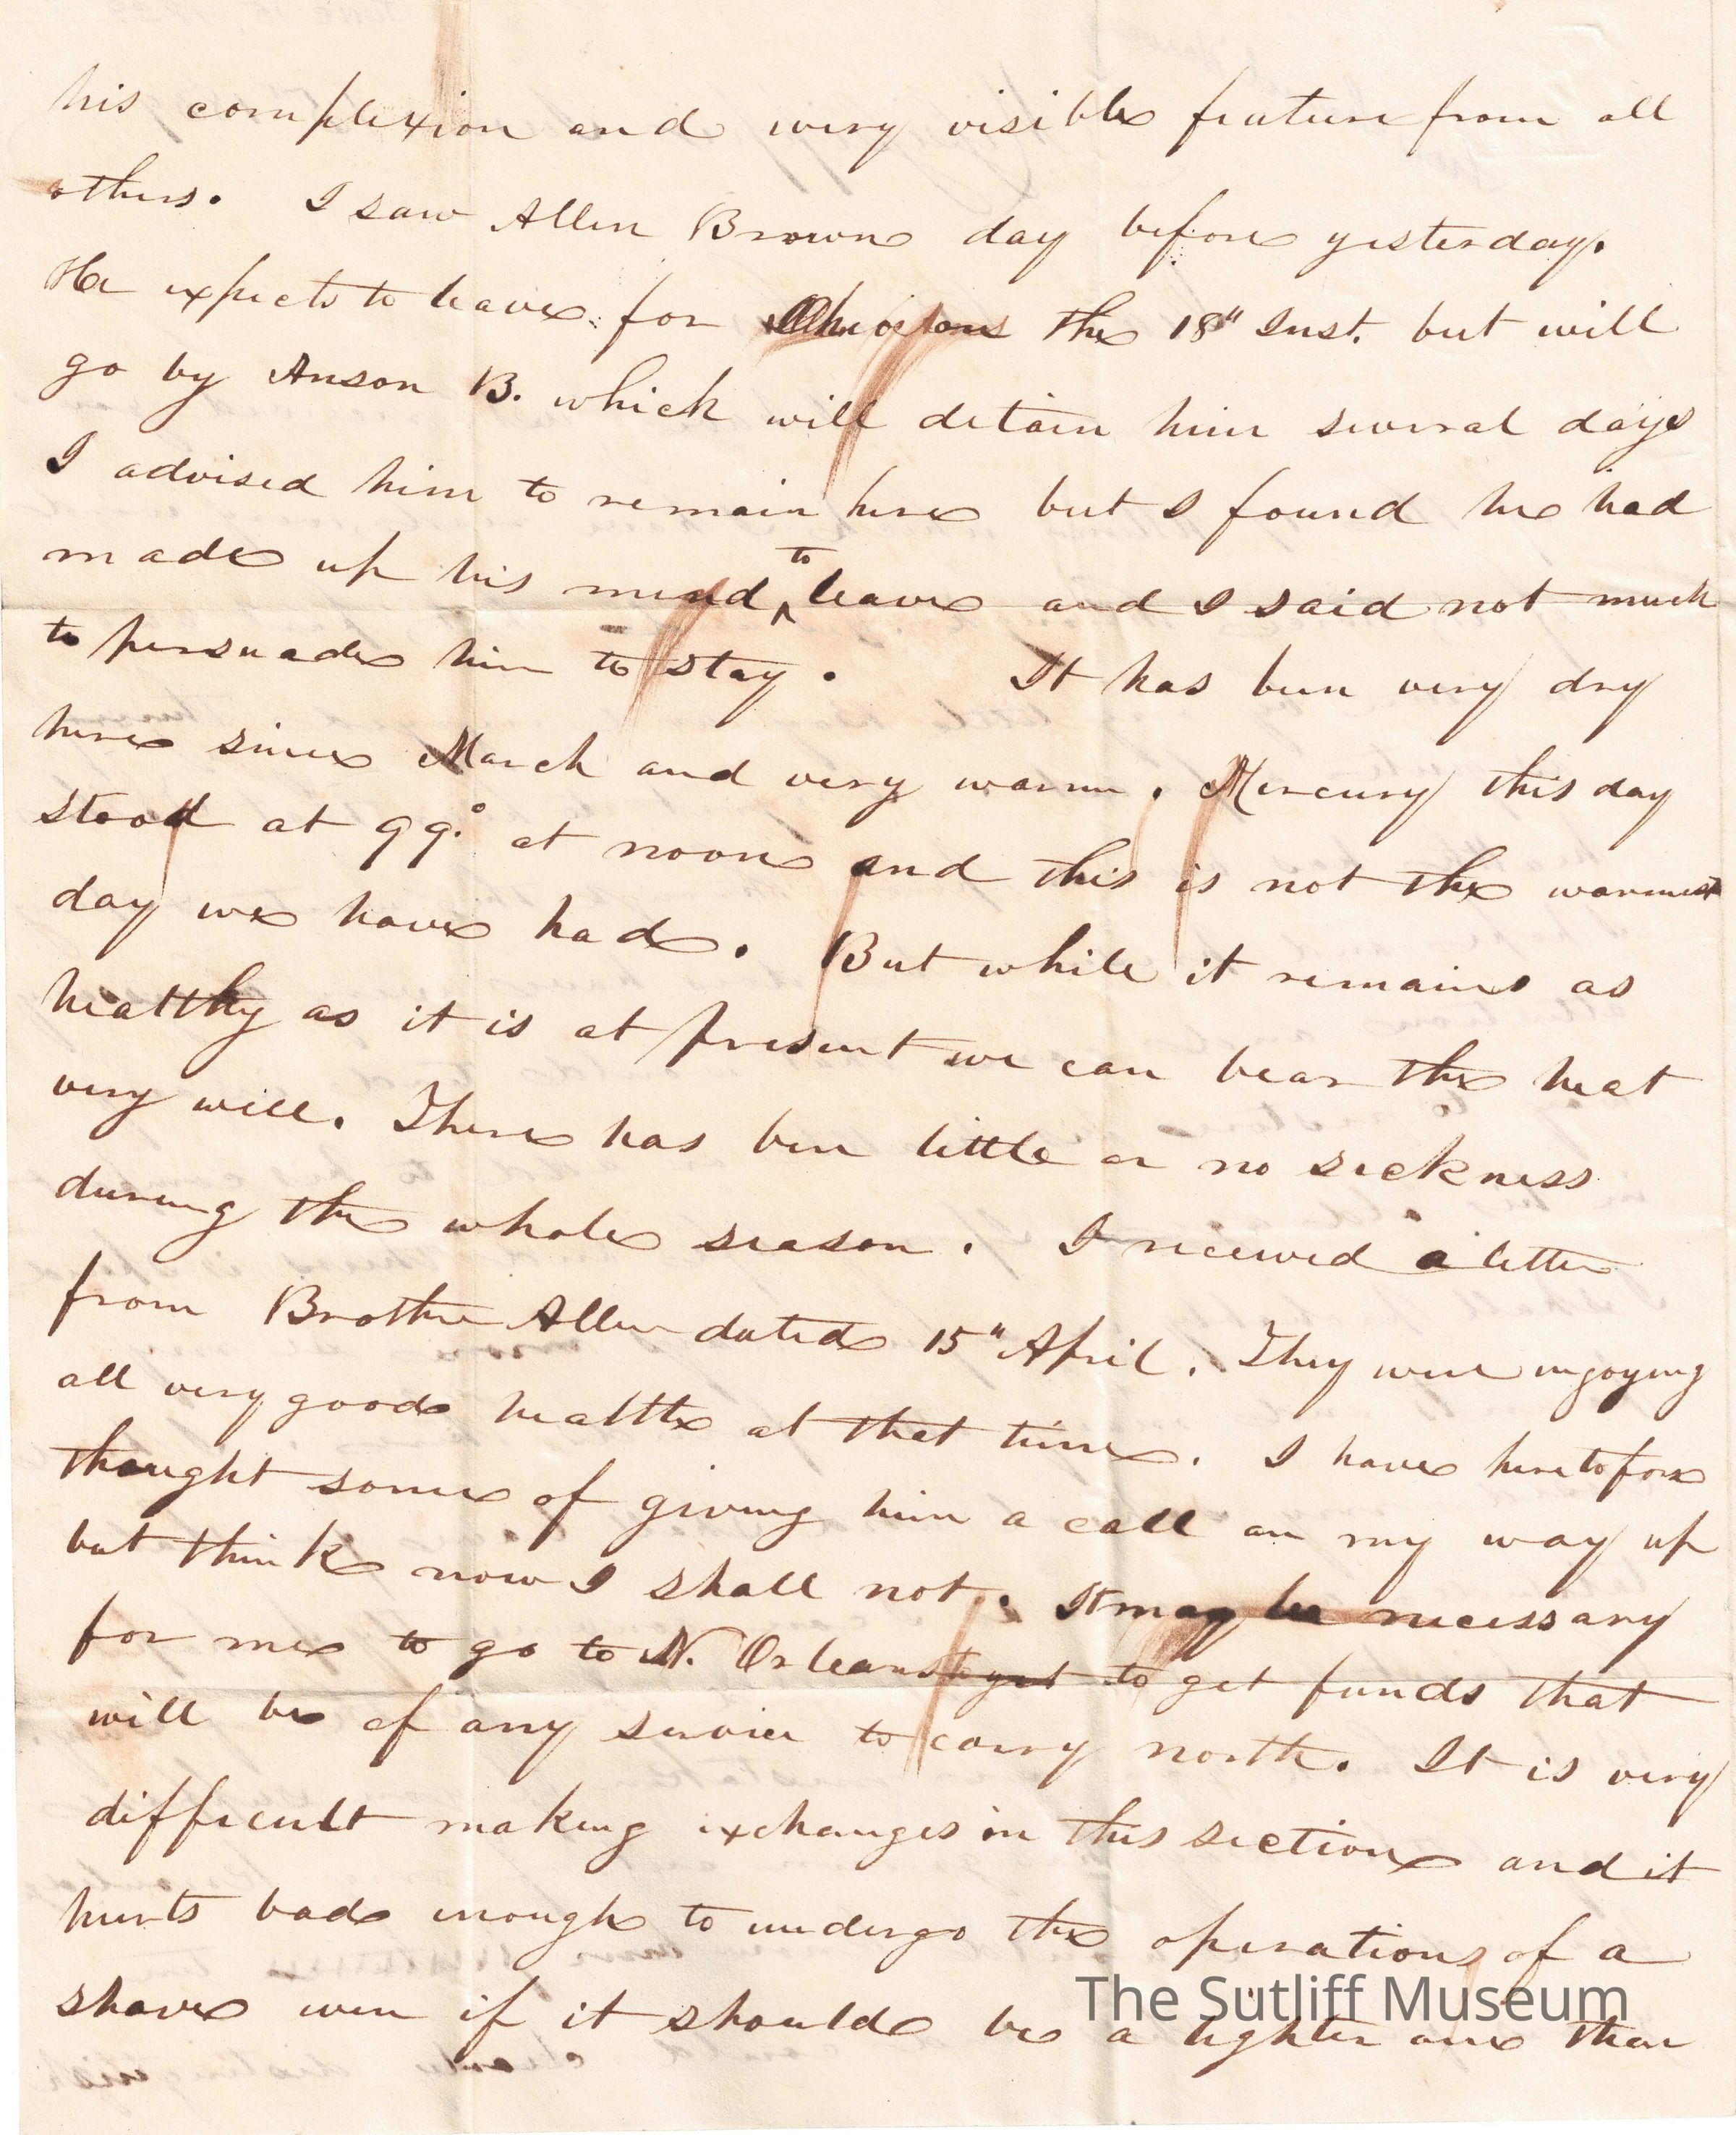 his complexion and every visible feature from all
others. I saw Allen Brown day before yesterday.
He expects to leave for the 18" Inst. but will
go by Anson B. which will detain him several days
I advised him to remain here but I found he had
made up his mind to leave and I said not much
to persuade him to stay. It has been very dry
here since March and very warm. Mercury this day
stood at 99.° at noon and this is not the warmest
day we have had. But while it remains as
healthy as it is at present we can bear the heat
very well. There has been little or no sickness
during the whole season. I received a letter
from Brother Allen dated 15" April. They were enjoying
all very good health at that time. I have heretofore
thought some of giving him a call on my way up
but think now I shall not. It may be necessary
for me to go to N. Orleans to get to get funds that
will be of any service to carry north. It is very
difficult making exchanges in this section and it
hurts bad enough to undergo the operations of a
shave even if it should be a lighter one than
The Sutliff Museum